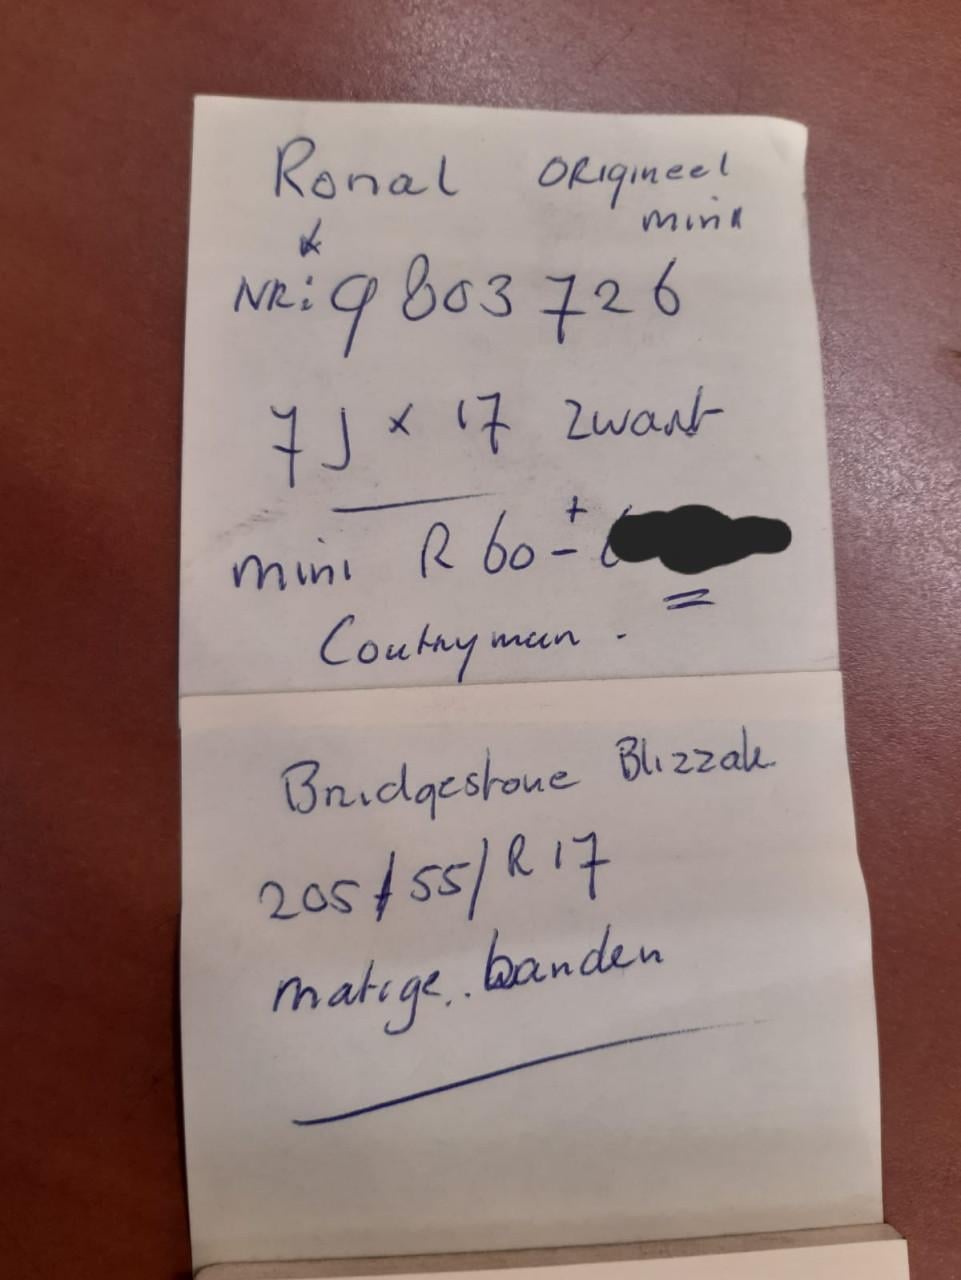 Ronal ORIgineel
mini
NR: 9803726
7J x 17 zwart
mini R60 ±
Coutryman.
Bridgestone Blizzak
205/55/R17
matige.. banden